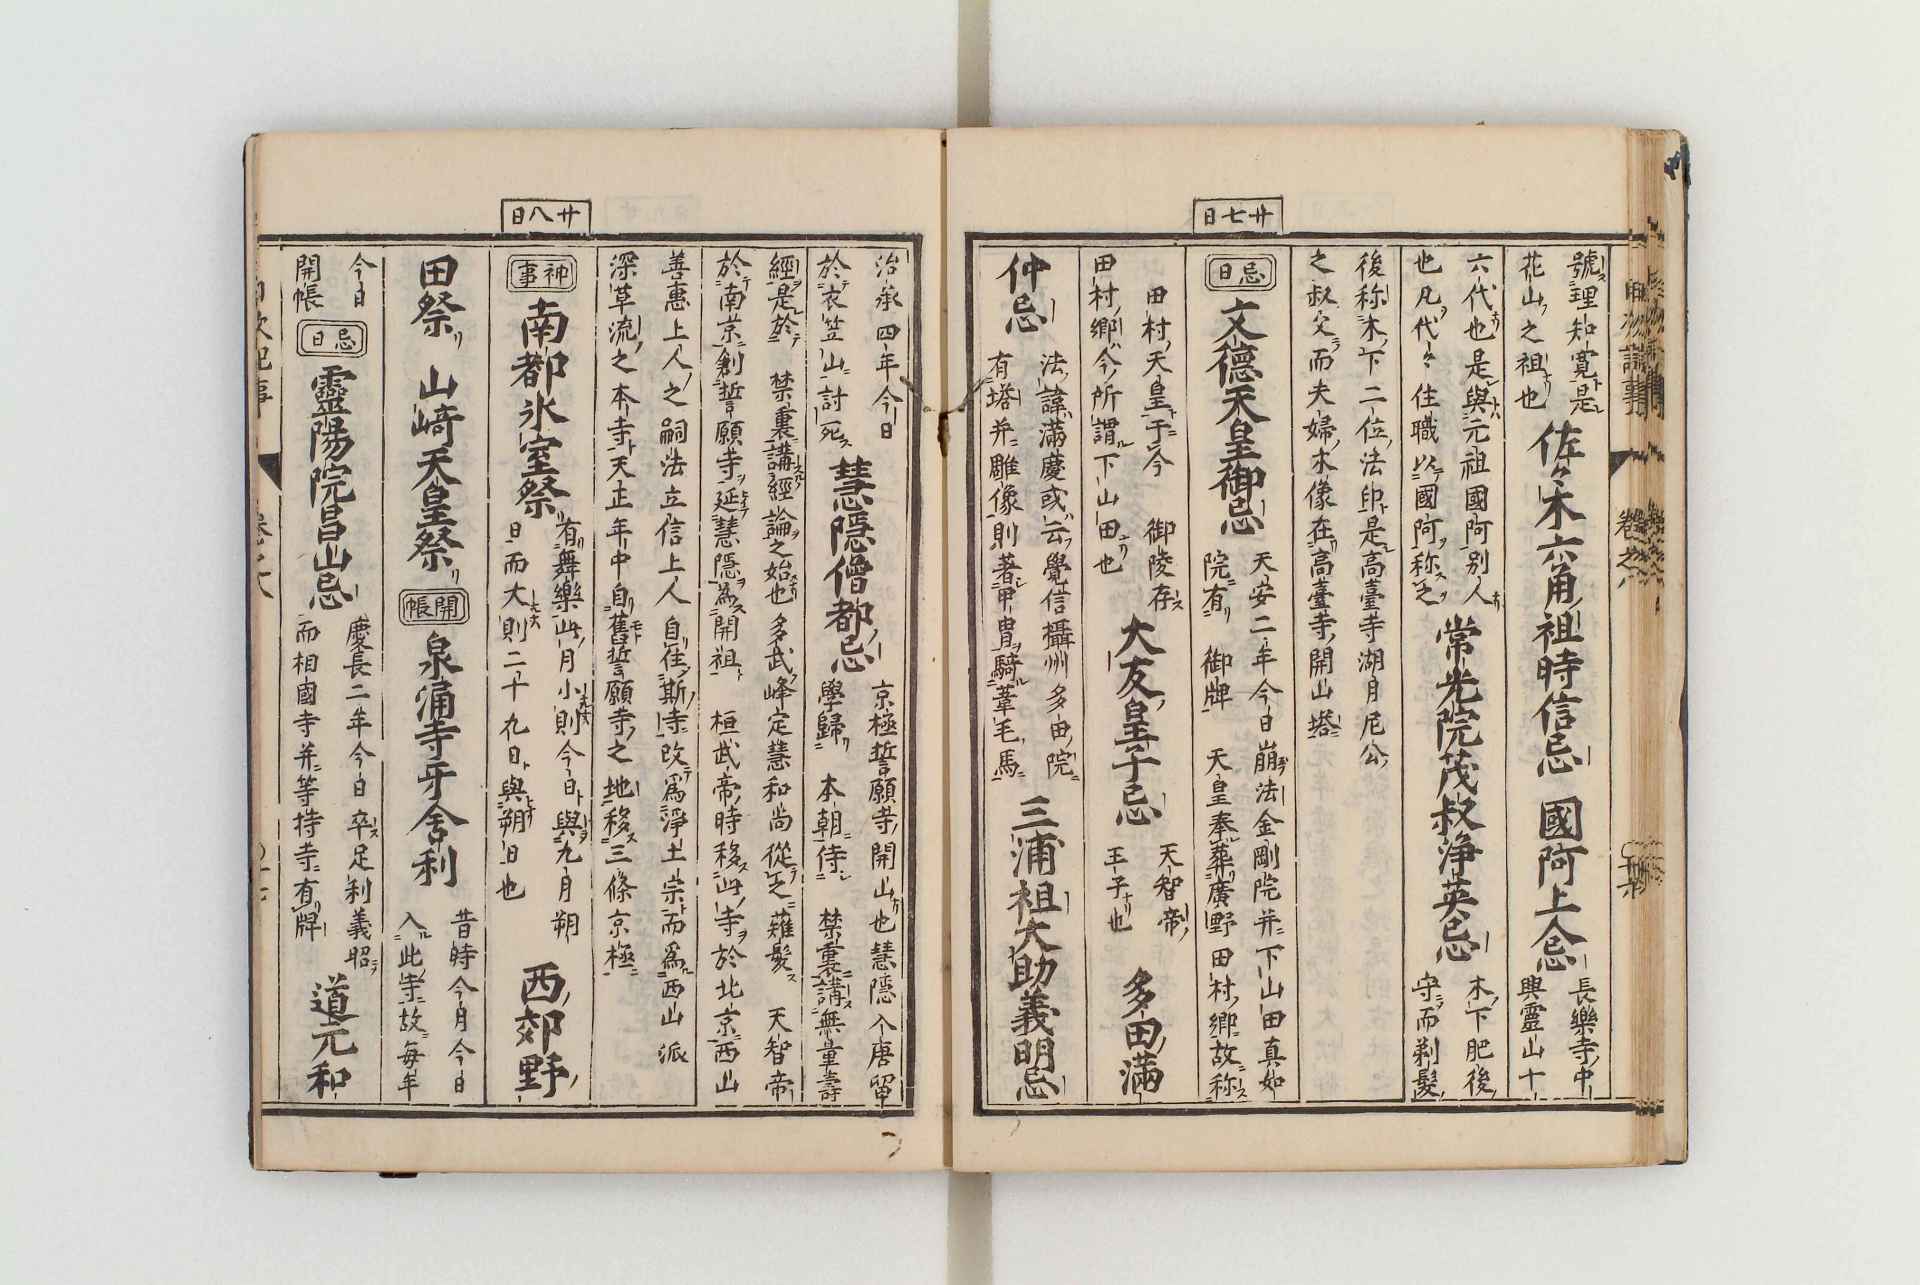 廿七日
號理知寛是
花山之祖也
佐々木六角祖時信忌 國阿上人忌
長樂寺中
興靈山十
六代也是與元祖國阿別人
也凡代々住職以國阿称之
常光院茂叔淨英忌
木下肥後
守而剃髮
後称木下二位法印是高臺寺湖月尼公
之叔父而夫婦木像在高臺寺開山塔
忌日
文德天皇御忌
天安二年今日崩法金剛院并下山田真如
院有 御牌 天皇奉葬廣野田村郷故称
田村天皇于今 御陵存
田村郷今所謂下山田也
大友皇子忌
天智帝
王子也
多田滿
仲忌
法諱滿慶或云覺信攝州多田院
有塔并雕像則著甲冑騎葦毛馬
三浦祖大助義明忌
廿八日
治承四年今日
於衣笠山討死
慧隱僧都忌
京極誓願寺開山也慧隱入唐留
學歸 本朝侍 禁裏講無量壽
經是於 禁裏講經論之始也多武峰定慧和尚從之薙髮 天智帝
於南京創誓願寺延慧隱為開祖 桓武帝時移此寺於北京西山
善惠上人之嗣法立信上人自住斯寺改爲淨土宗而爲西山派
深草流之本寺天正年中自舊誓願寺之地移三條京極
神事
南都氷室祭
有舞樂此月小則今日與九月朔
日而大則二十九日與朔日也
西郊野
田祭 山崎天皇祭
開帳
泉涌寺牙舍利
昔時今月今日
入此寺故每年
今日
開帳
忌日
靈陽院昌山忌
慶長二年今日卒足利義昭
而相國寺并等持寺有牌
道元和